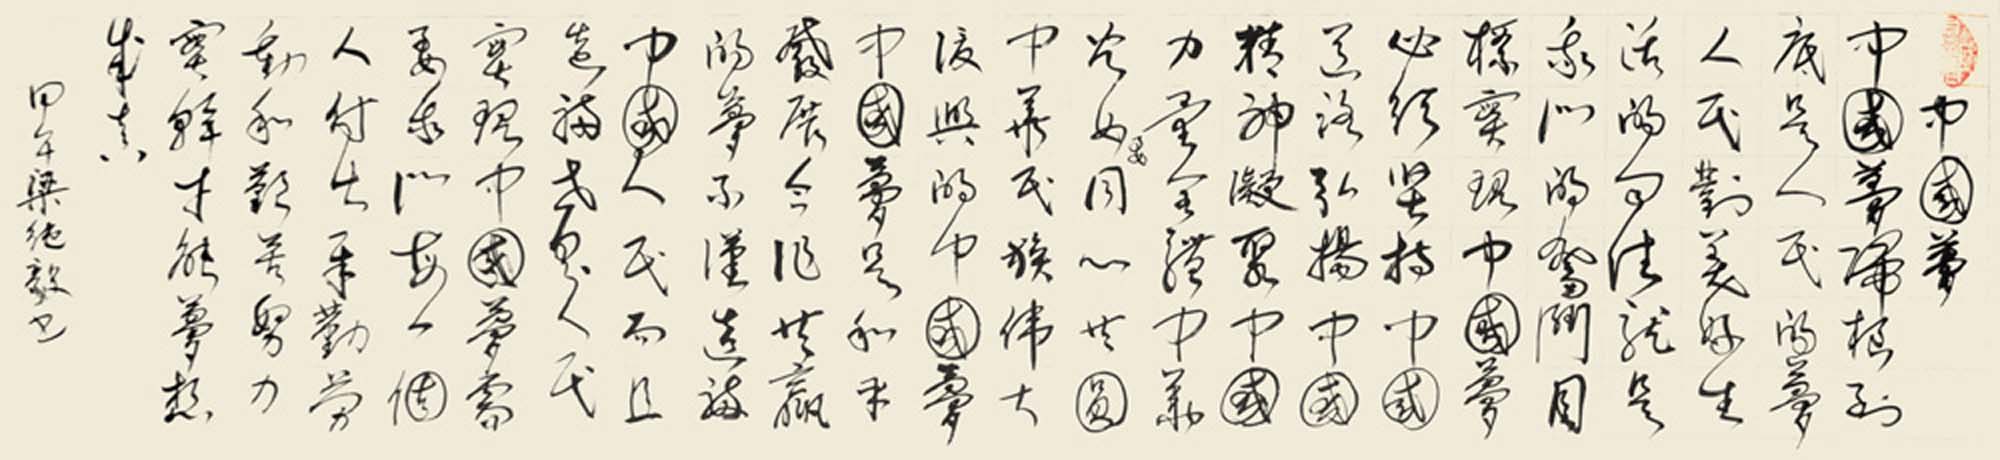 中國夢
中國夢歸根到
底是人民的夢
人民對美好生
活的向往就是
我们的奮鬥目
標實現中國夢
必須堅持中國
道路弘揚中國
精神凝聚中國
力量全體中華
兒女同心共圓
中華民族偉大
復興的中國夢
中國夢是和平
發展合作共贏
的夢不僅造福
中國人民而且
造福世界人民
實現中國夢需
要我们每一個
人付出辛勤勞
動和艱苦努力
實幹才能夢想
成真
甲午梁毅书